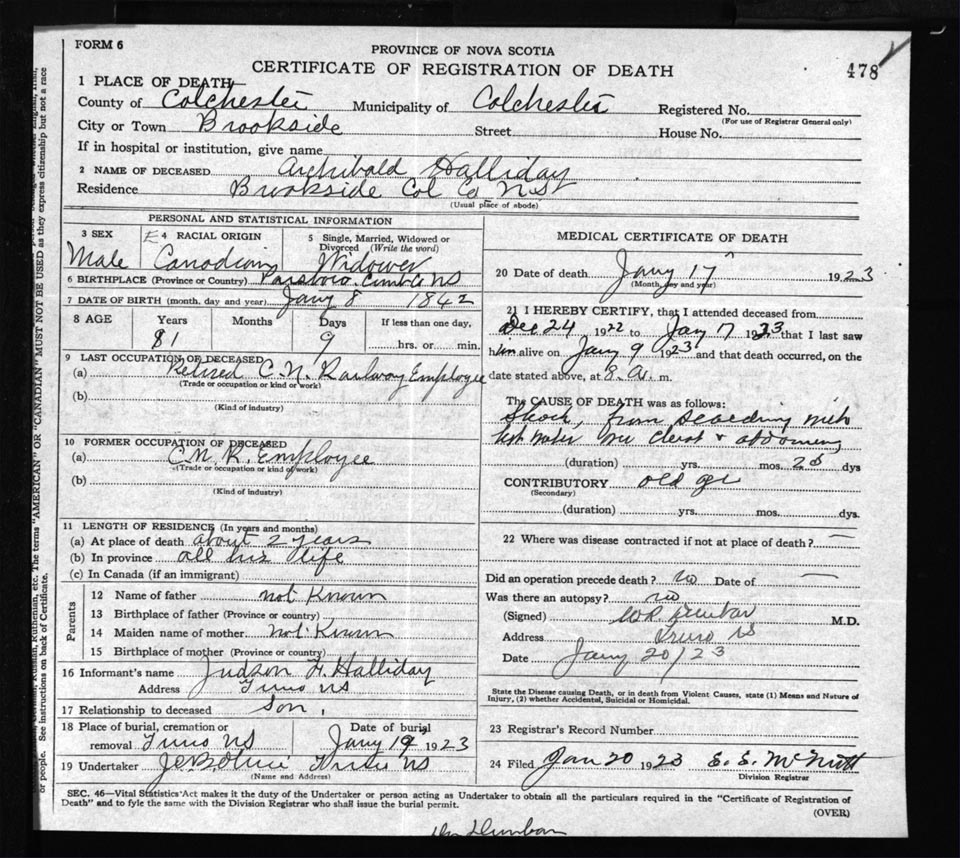 FORM 6
PROVINCE OF NOVA SCOTIA
CERTIFICATE OF REGISTRATION OF DEATH
478
1 PLACE OF DEATH
County of Colchester Municipality of Colchester Registered No.
(For use of Registrar General only)
City or Town Brookside Street House No.
If in hospital or institution, give name
2 NAME OF DECEASED Archibald Halliday
Residence Brookside Col Co N.S
(Usual place of abode)
PERSONAL AND STATISTICAL INFORMATION
3 SEX E 4 RACIAL ORIGIN 5 Single, Married, Widowed or
Divorced (Write the word)
Male Canadian Widower
6 BIRTHPLACE (Province or Country) Parsboro Cumb Co NS
7 DATE OF BIRTH (month, day and year) Jany 8 1842
8 AGE Years Months Days If less than one day,
81 9 hrs. or min.
9 LAST OCCUPATION OF DECEASED
(a) Retired C.N. Railway Employee
(Trade or occupation or kind of work)
(b)
(Kind of industry)
10 FORMER OCCUPATION OF DECEASED
(a) C.N.R. Employee
(Trade or occupation or kind of work)
(b)
(Kind of industry)
11 LENGTH OF RESIDENCE (In years and months)
(a) At place of death about 2 years
(b) In province all his life
(c) In Canada (if an immigrant)
Parents
12 Name of father not Known
13 Birthplace of father (Province or country)
14 Maiden name of mother not Known
15 Birthplace of mother (Province or country)
16 Informant's name Judson F. Halliday
Address Truro NS
17 Relationship to deceased Son.
18 Place of burial, cremation or Date of burial
removal Truro NS Jany 19 1923
19 Undertaker Truro NS
(Name and Address)
MEDICAL CERTIFICATE OF DEATH
20 Date of death Jany 17 1923
(Month, day and year)
21 I HEREBY CERTIFY, that I attended deceased from
Dec 24 1922 to Jany 17 1923 that I last saw
him alive on Jany 9 1923 and that death occurred, on the
date stated above, at 8. A. m.
The CAUSE OF DEATH was as follows:
Shock, from scalding with
hot water on chest & abdomen
(duration) yrs. mos. dys
CONTRIBUTORY old age
(Secondary)
(duration) yrs. mos. dys.
22 Where was disease contracted if not at place of death? —
Did an operation precede death? no Date of —
Was there an autopsy? no
(Signed) M.D.
Address Truro NS
Date Jany 20/23
State the Disease causing Death, or in death from Violent Causes, state (1) Means and Nature of
Injury, (2) whether Accidental, Suicidal or Homicidal.
23 Registrar's Record Number
24 Filed Jan 20 1923 E. S. McNutt
Division Registrar
SEC. 46—Vital Statistics Act makes it the duty of the Undertaker or person acting as Undertaker to obtain all the particulars required in the "Certificate of Registration of
Death" and to fyle the same with the Division Registrar who shall issue the burial permit.
(OVER)
Dr Dunbar
Ruthenian, etc. The terms "AMERICAN" OR "CANADIAN" MUST NOT BE USED as they express citizenship but not a race
or people. See instructions on back of Certificate.